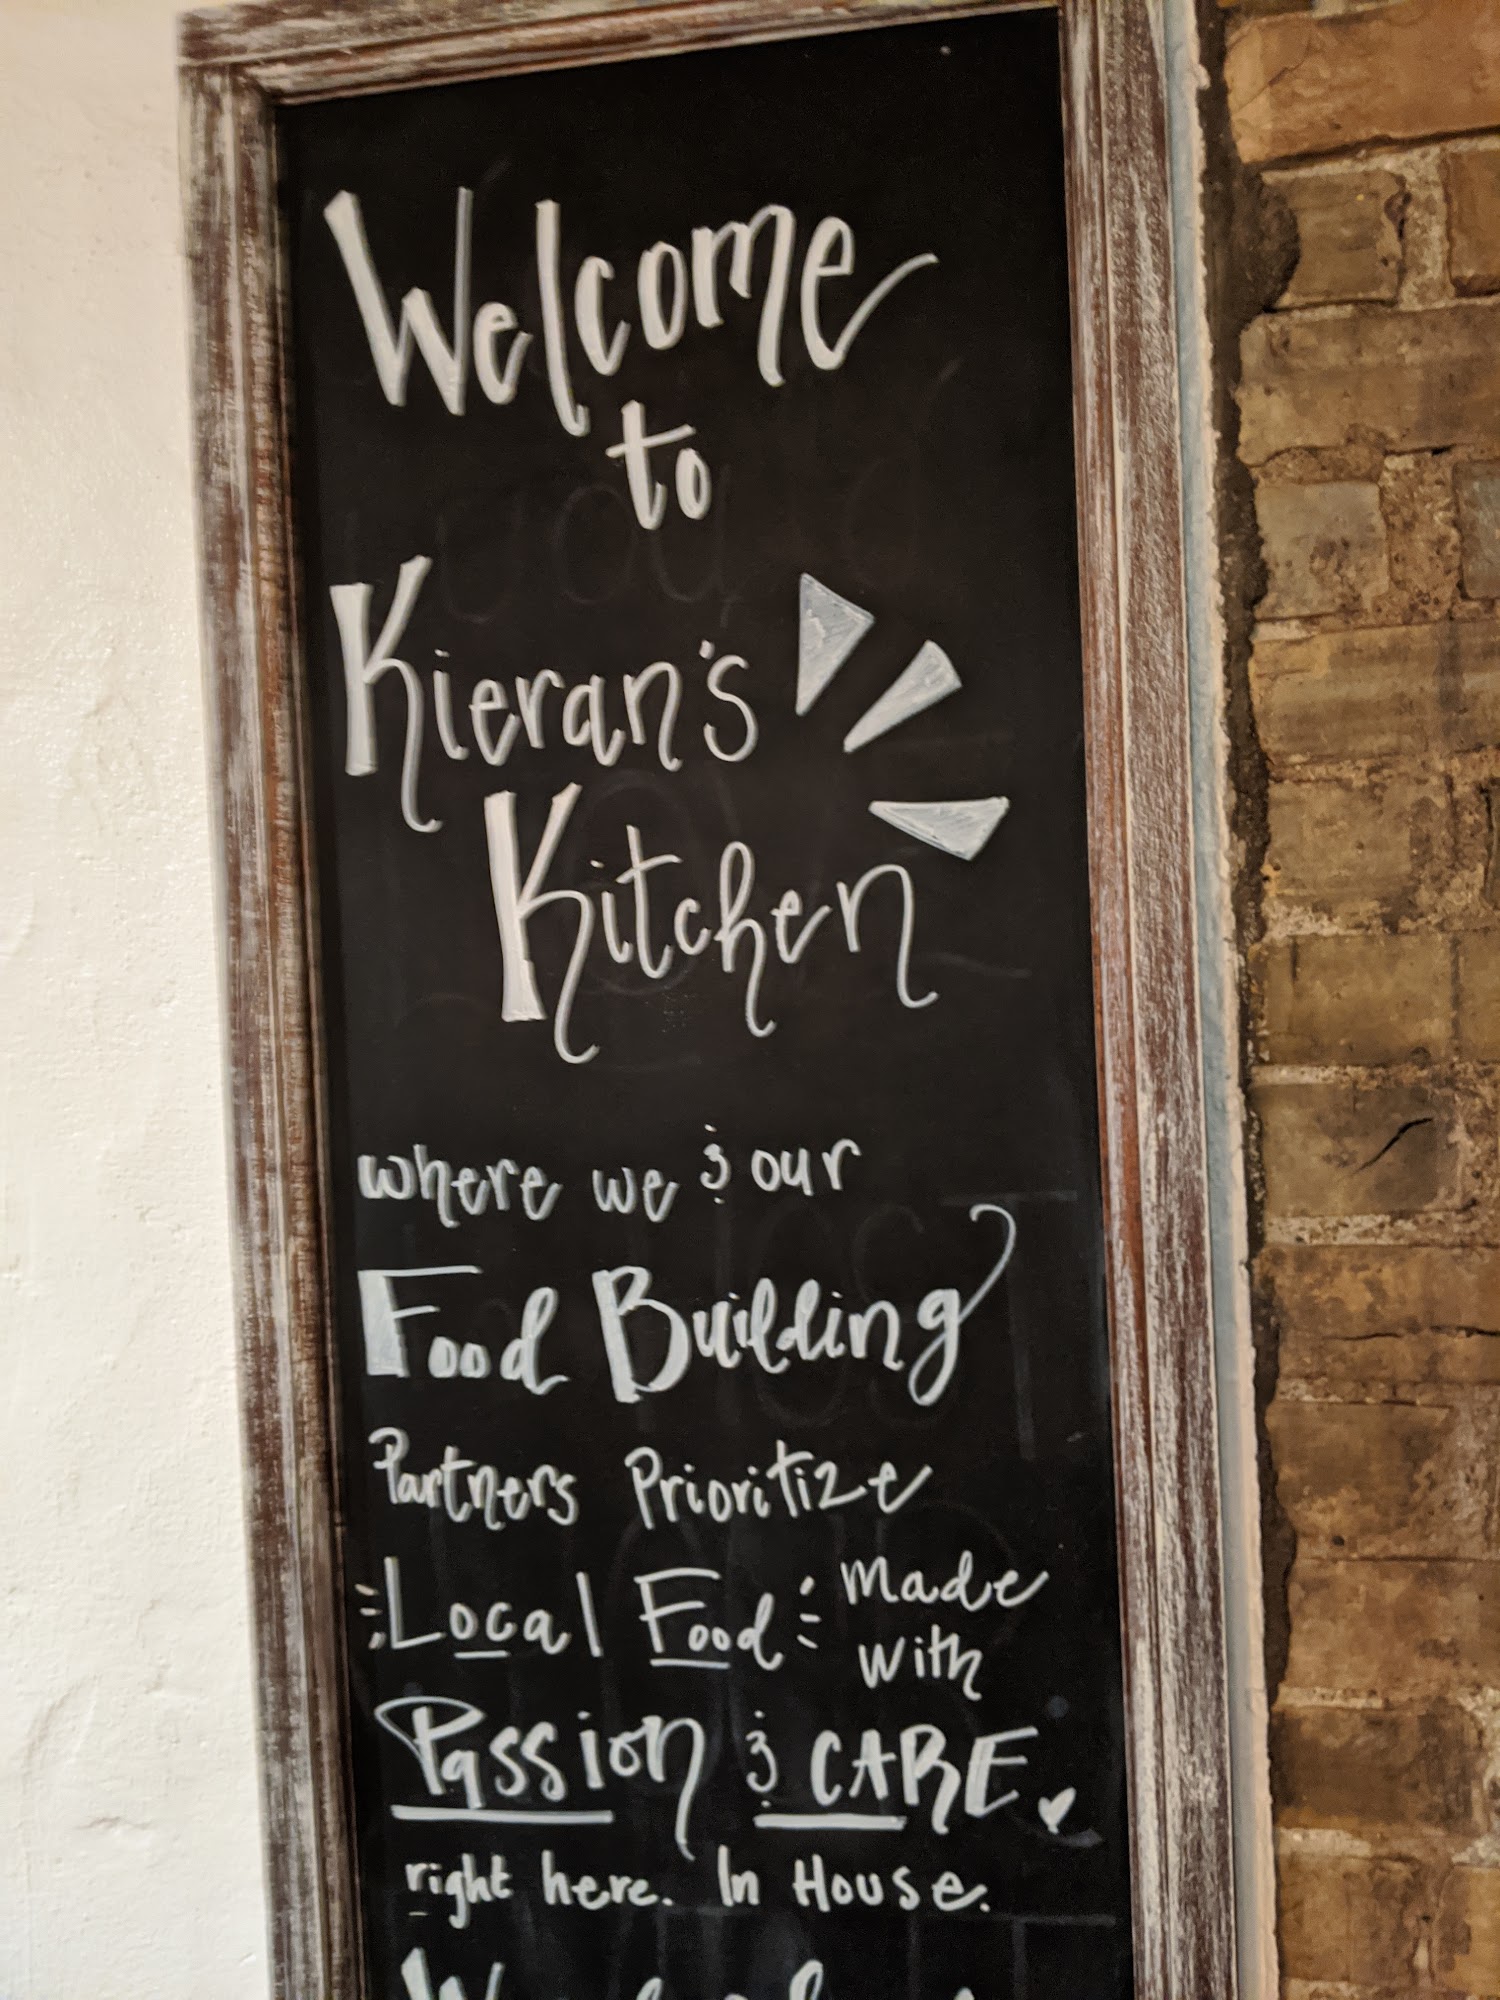 Welcome
to
Kieran's
Kitchen
where we & our
Food Building
Partners Prioritize
Local Food made
with
Passion & CARE
right here. In House.